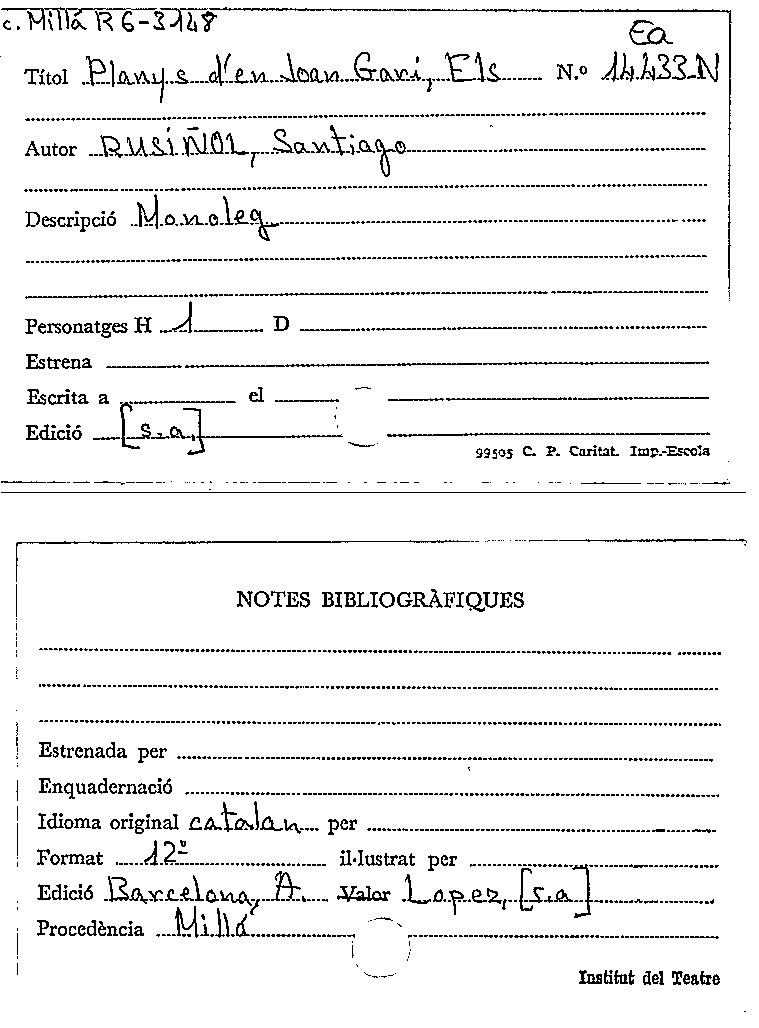 c. Millá R 6-3148
Ea
Títol Planys d'en Joan Gari, Els N.º 14.433-N
Autor RUSIÑOL, Santiago
Descripció Monoleg
Personatges H 1 D
Estrena
Escrita a el
Edició [s.a.]
99505 C. P. Caritat. Imp.-Escola
NOTES BIBLIOGRÀFIQUES
Estrenada per
Enquadernació
Idioma original catalan per
Format 12º il·lustrat per
Edició Barcelona, A. Valor Lopez, [s.a]
Procedència Millá
Institut del Teatre